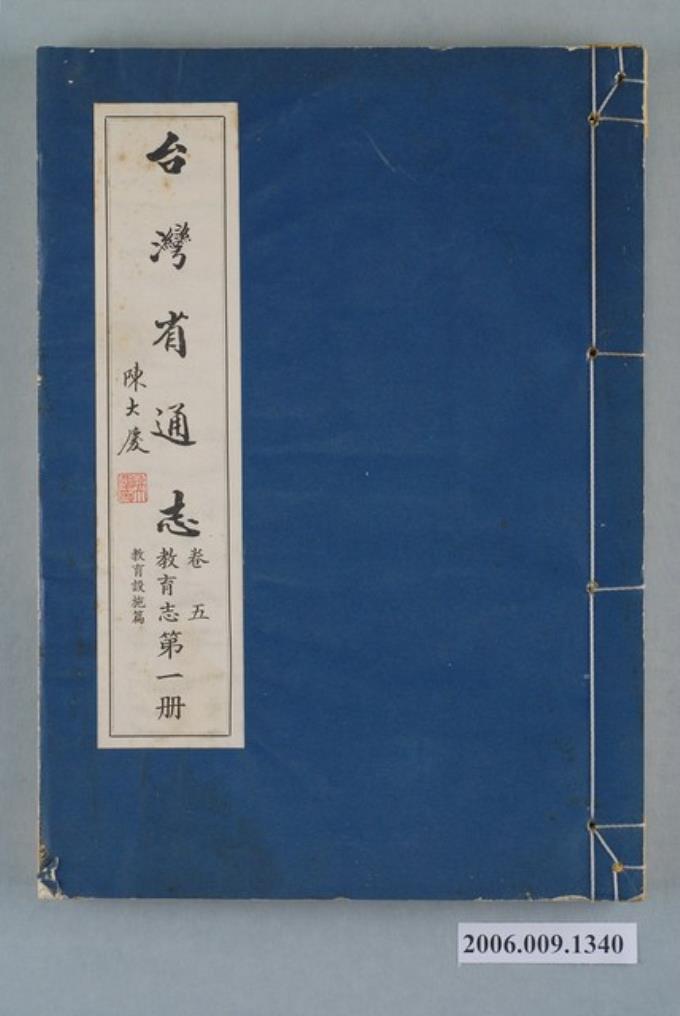 台灣省通志
陳大慶
卷五
教育志第一册
教育設施篇
2006.009.1340